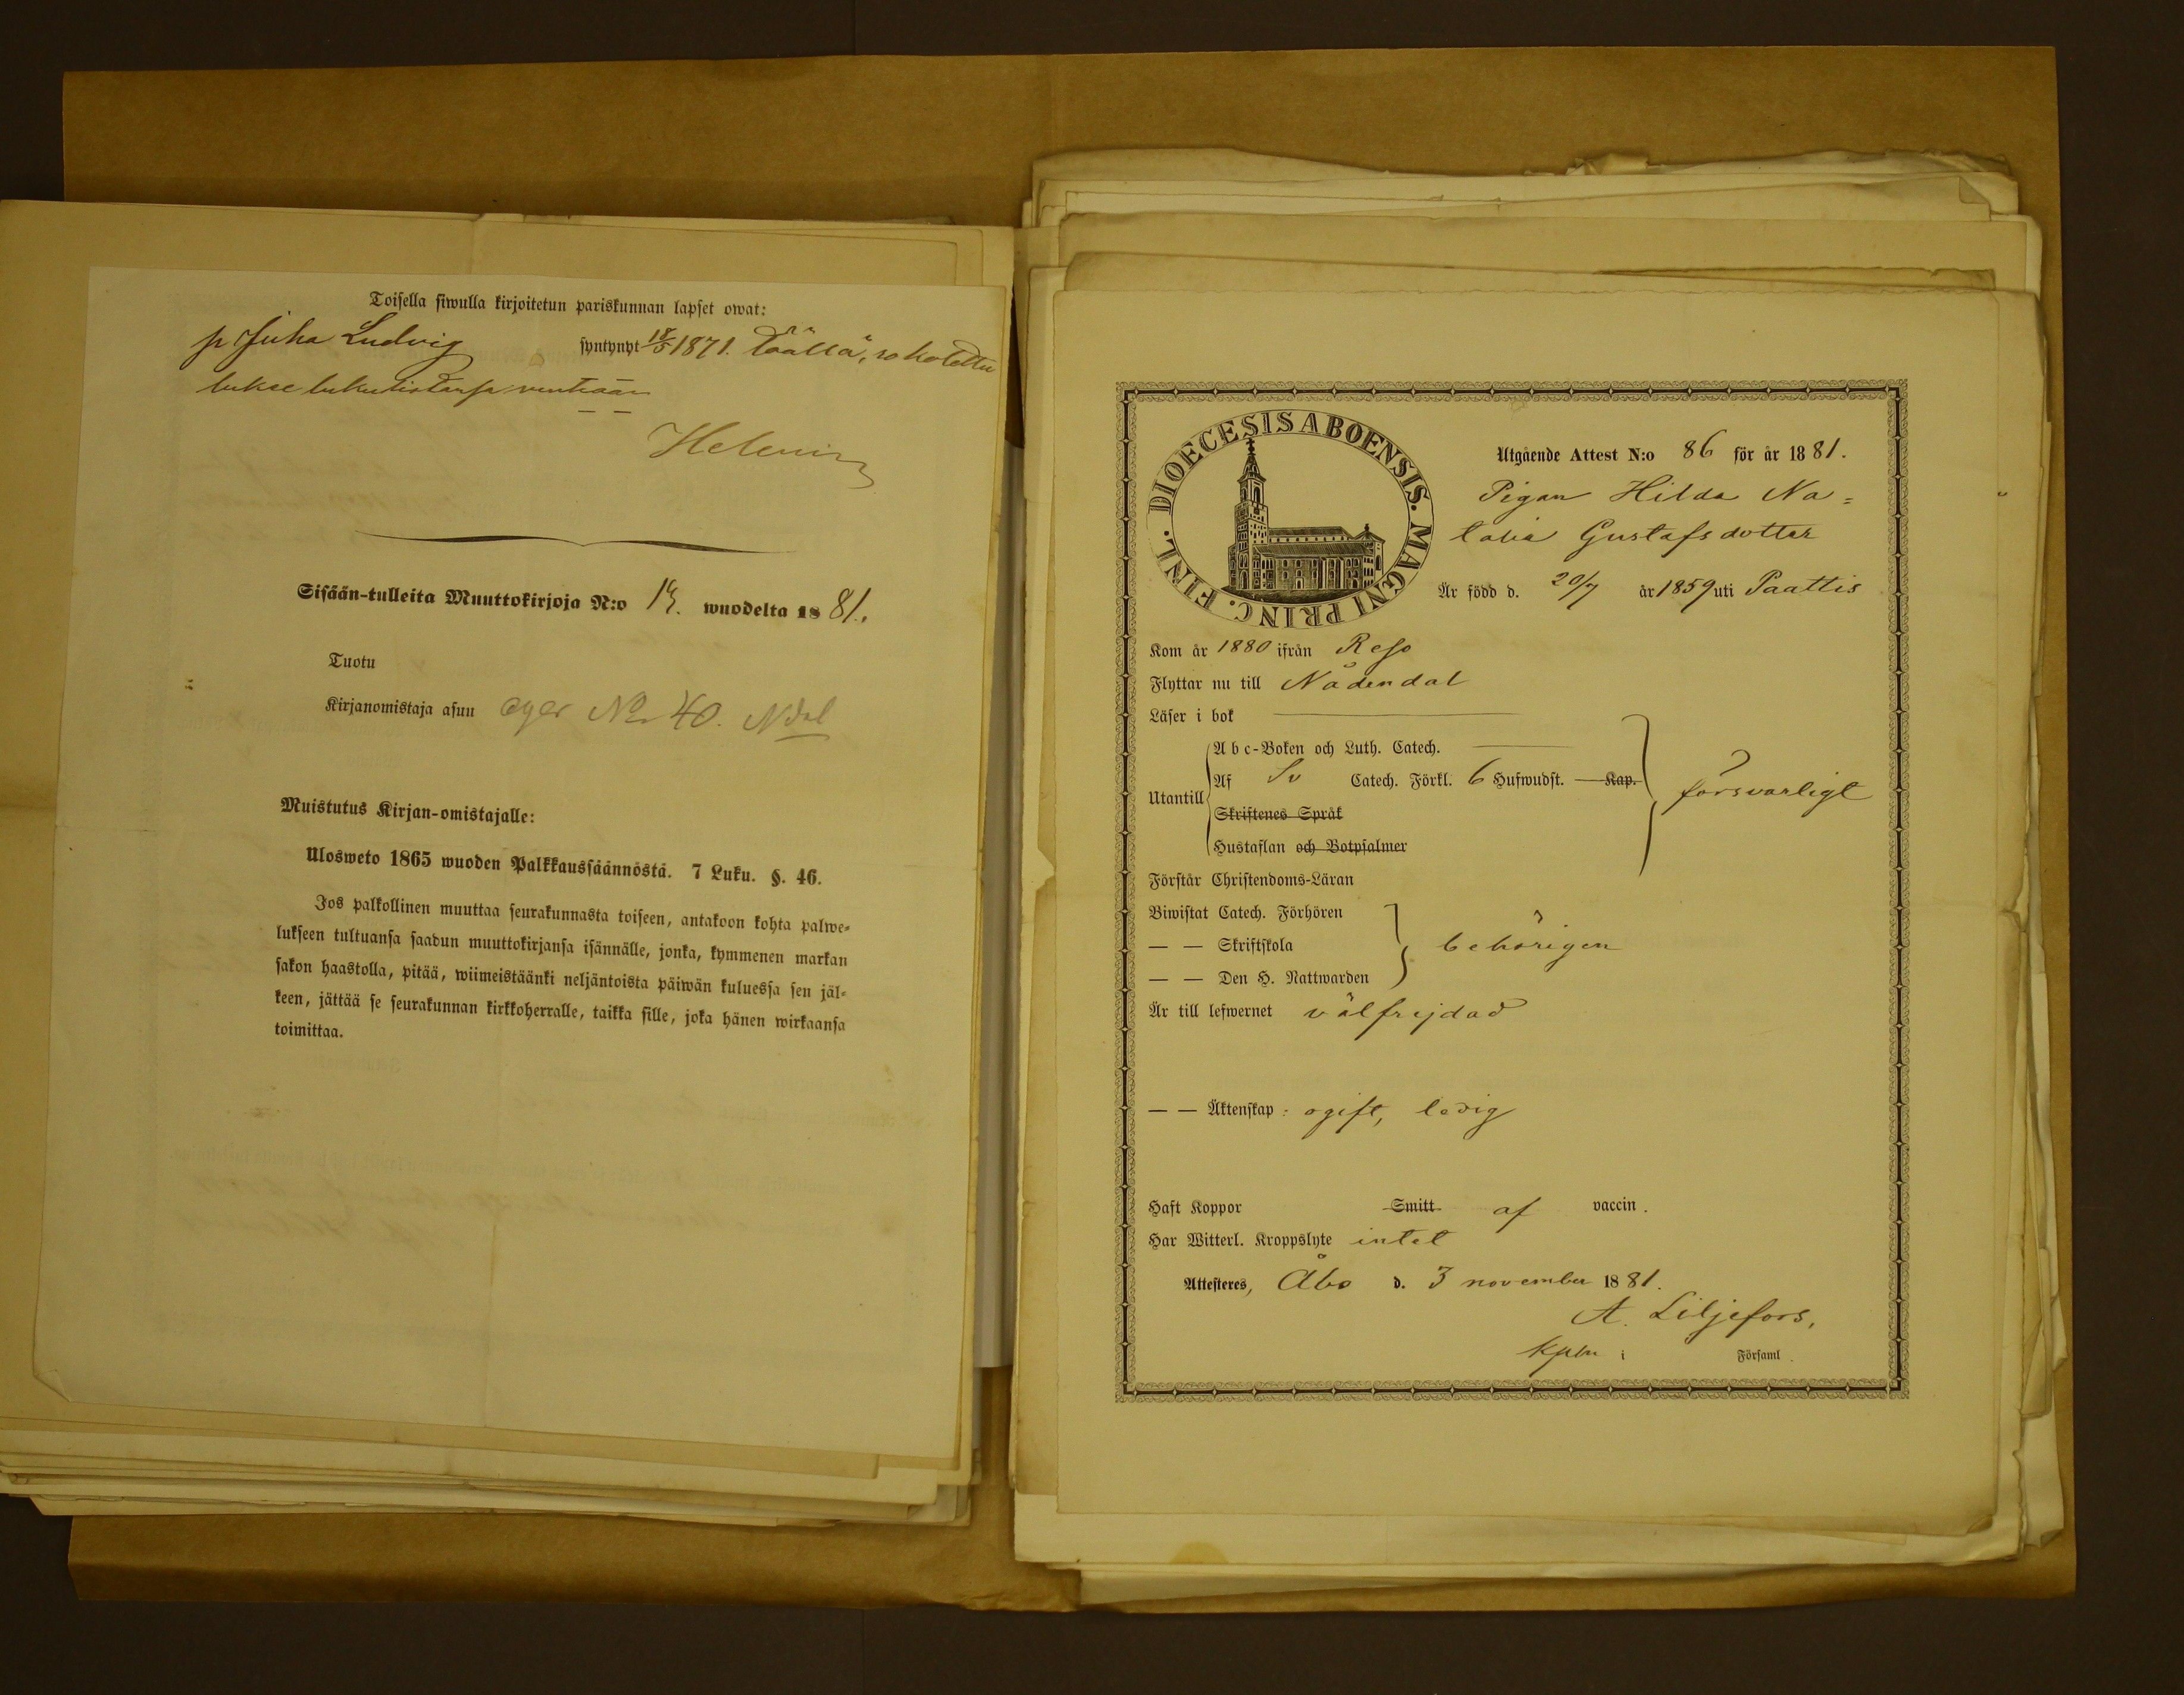 Toisella siwulla kirjoitetun pariskunnan lapset owat:
p Juha Ludvig syntynyt 18/5 1871. täällä, rokotettu
lukee lukulistansa
Helenius
Sisään-tulleita Muuttokirjoja N:o 19. wuodelta 1881.
Tuotu
Kirjanomistaja asuu eger No 40. Ndal
Muistutus Kirjan-omistajalle:
Ulosweto 1865 wuoden Palkkaussäännöstä. 7 Luku. §. 46.
Jos palkollinen muuttaa seurakunnasta toiseen, antakoon kohta palwe=
lukseen tultuansa saadun muuttokirjansa isännälle, jonka, kymmenen markan
sakon haastolla, pitää, wiimeistäänki neljäntoista päiwän kuluessa sen jäl=
keen, jättää se seurakunnan kirkkoherralle, taikka sille, joka hänen wirkaansa
toimittaa.
DIOECESIS ABOENSIS. MAGNI PRINC. FINL.
Utgående Attest N:o 86 för år 1881.
Pigan Hilda Na=
talia Gustafsdotter
Är född d. 20/7 år 1859 uti Paattis
Kom år 1880 ifrån Reso
Flyttar nu till Nådendal
Läser i bok
Utantill
Abc-Boken och Luth. Catech.
Af Sv Catech. Förkl. 6 Hufwudst. Kap.
Skriftenes Språk
Hustaflan och Botpsalmer
försvarligt
Förstår Christendoms-Läran
Biwistat Catech. Förhören
— — Skriftskola
— — Den H. Nattwarden
behörigen
Är till lefwernet välfrejdad
— — Äktenskap: ogift, ledig
Haft Koppor Smitt af vaccin.
Har Witterl. Kroppslyte intet
Attesteres, Åbo d. 3 november 1881.
A. Liljefors,
Kpln i Församl.